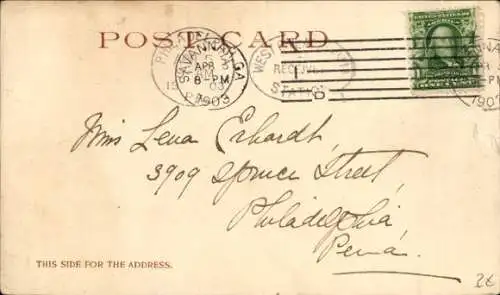 POST CARD
SAVANNAH, GA.
APR
8-PM
1903
WEST
RECEIVED
STATION
B
Miss Lena Erhardt,
3909 Spruce Street,
Philadelphia,
Penna.
THIS SIDE FOR THE ADDRESS.